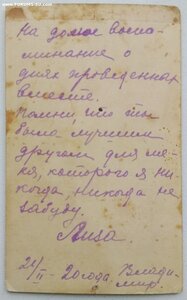 На долгое воспо-
минание о
днях проведенных
вместе.
Помни, что ты
была лучшим
другом для ме-
ня, которого я ни
когда, никогда не
забуду.
Лиза.
21/II 20 года. Влади-
мир.